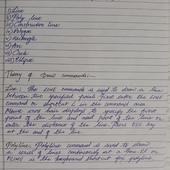 1) Line
2) Poly line
3) Construction line
4) Polygon
5) Rectangle
6) Arc
7) Circle
8) Ellipse
Theory of basic commands:-
Line: The LINE command is used to draw a line
between two specified points. First enter the LINE
command or shortcut L in the command area.
Move your to specify the first
point of the line and next point of the line or
enter the distance of the line. Press ESC key
at the end of the line.
Polyline: Polyline command is used to draw
a series of lines continuously at a time. PL or
PLINE is the keyboard shortcut for polyline.